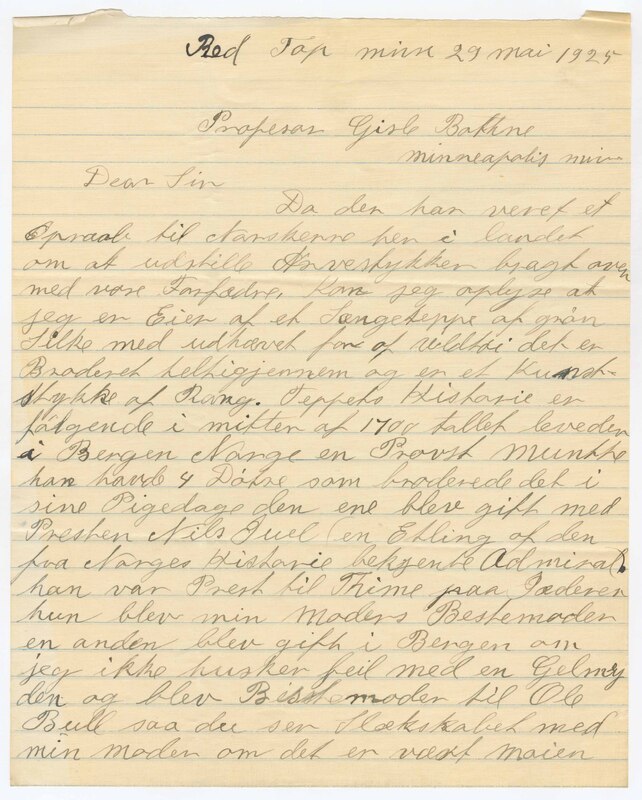 Red Top minn 29 mai 1925
Profesar Gisle Bothne
minneapolis minn
Dear Sir
Da der har veret et
Opraab til Narskerne her i landet
om at udstille Arvestykker bragt over
med vore Forfædre. Kan jeg oplyse at
jeg er Eier af et Sængeteppe af grön
Silke med udhævet for af det er
Broderet helt igjennem og er et Kunst-
stykke af Rang. Teppets Historie er
følgende i mitten af 1700 tallet levede
i Bergen Narge en Provst Munthe
han havde 4 Dötre som broderede det i
sine Pigedage den ene blev gift med
Presten Nils Juel (en Etling af den
fra Narges Historie bekjente Admiral).
han var Prest til Thime paa Jæderen
hun blev min Moders Bestemoder
en anden blev gift i Bergen om
jeg ikke husker feil med en Gelmuy
den og blev Bestemoder til Ole
Bull saa du ser Slækskabet med
min moder om det er vært maien